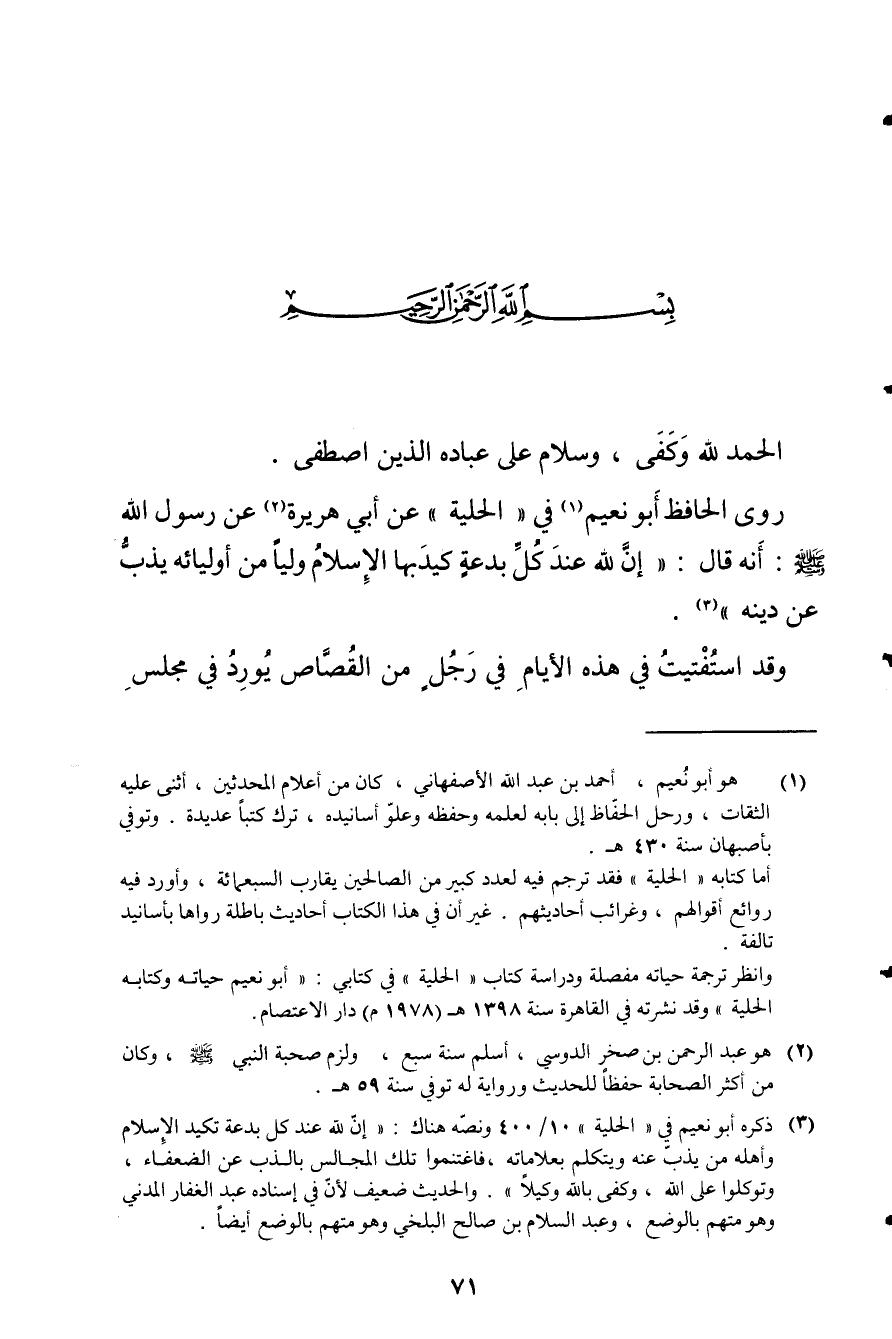 بِسْمِ ٱللَّهِ ٱلرَّحْمَٰنِ ٱلرَّحِيمِ
الحمد لله وَكَفَى ، وسلام على عباده الذين اصطفى .
روى الحافظ أَبو نعيم(١) في « الحلية » عن أبي هريرة(٢) عن رسول الله
ﷺ : أَنه قال : « إنَّ لله عندَ كُلِّ بدعةٍ كيدَبها الإِسلامُ ولياً من أوليائه يذبُّ
عن دينه »(٣) .
وقد استُفْتيتُ في هذه الأيامِ في رَجُلٍ من القُصَّاص يُورِدُ في مجلسِ
(١) هو أبو نُعيم ، أحمد بن عبد الله الأصفهاني ، كان من أعلام المحدثين ، أثنى عليه
الثقات ، ورحل الحفّاظ إلى بابه لعلمه وحفظه وعلوّ أسانيده ، ترك كتباً عديدة . وتوفي
بأصبهان سنة ٤٣٠ هـ .
أما كتابه « الحلية » فقد ترجم فيه لعدد كبير من الصالحين يقارب السبعمائة ، وأورد فيه
روائع أقوالهم ، وغرائب أحاديثهم . غير أن في هذا الكتاب أحاديث باطلة رواها بأسانيد
تالفة .
وانظر ترجمة حياته مفصلة ودراسة كتاب « الحلية » في كتابي : « أبو نعيم حياتـه وكتابـه
الحلية » وقد نشرته في القاهرة سنة ١٣٩٨ هـ (١٩٧٨ م) دار الاعتصام.
(٢) هو عبد الرحمن بن صخر الدوسي ، أسلم سنة سبع ، ولزم صحبة النبي ﷺ ، وكان
من أكثر الصحابة حفظاً للحديث ورواية له توفي سنة ٥٩ هـ .
(٣) ذكره أبو نعيم في « الحلية » ١٠/ ٤٠٠ ونصّه هناك : « إنّ لله عند كل بدعة تكيد الإِسلام
وأهله من يذبّ عنه ويتكلم بعلاماته ،فاغتنموا تلك المجـالس بالـذب عن الضعفـاء ،
وتوكلوا على الله ، وكفى بالله وكيلاً » . والحديث ضعيف لأنّ في إسناده عبد الغفار المدني
وهو متهم بالوضع ، وعبد السلام بن صالح البلخي وهو متهم بالوضع أيضاً .
٧١